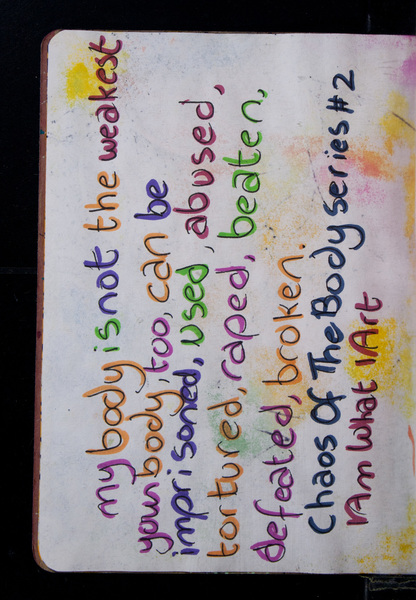 my body is not the weakest
your body, too, can be
imprisoned, used, abused,
tortured, raped, beaten,
defeated, broken.
Chaos Of The Body series #2
IAm What IArt